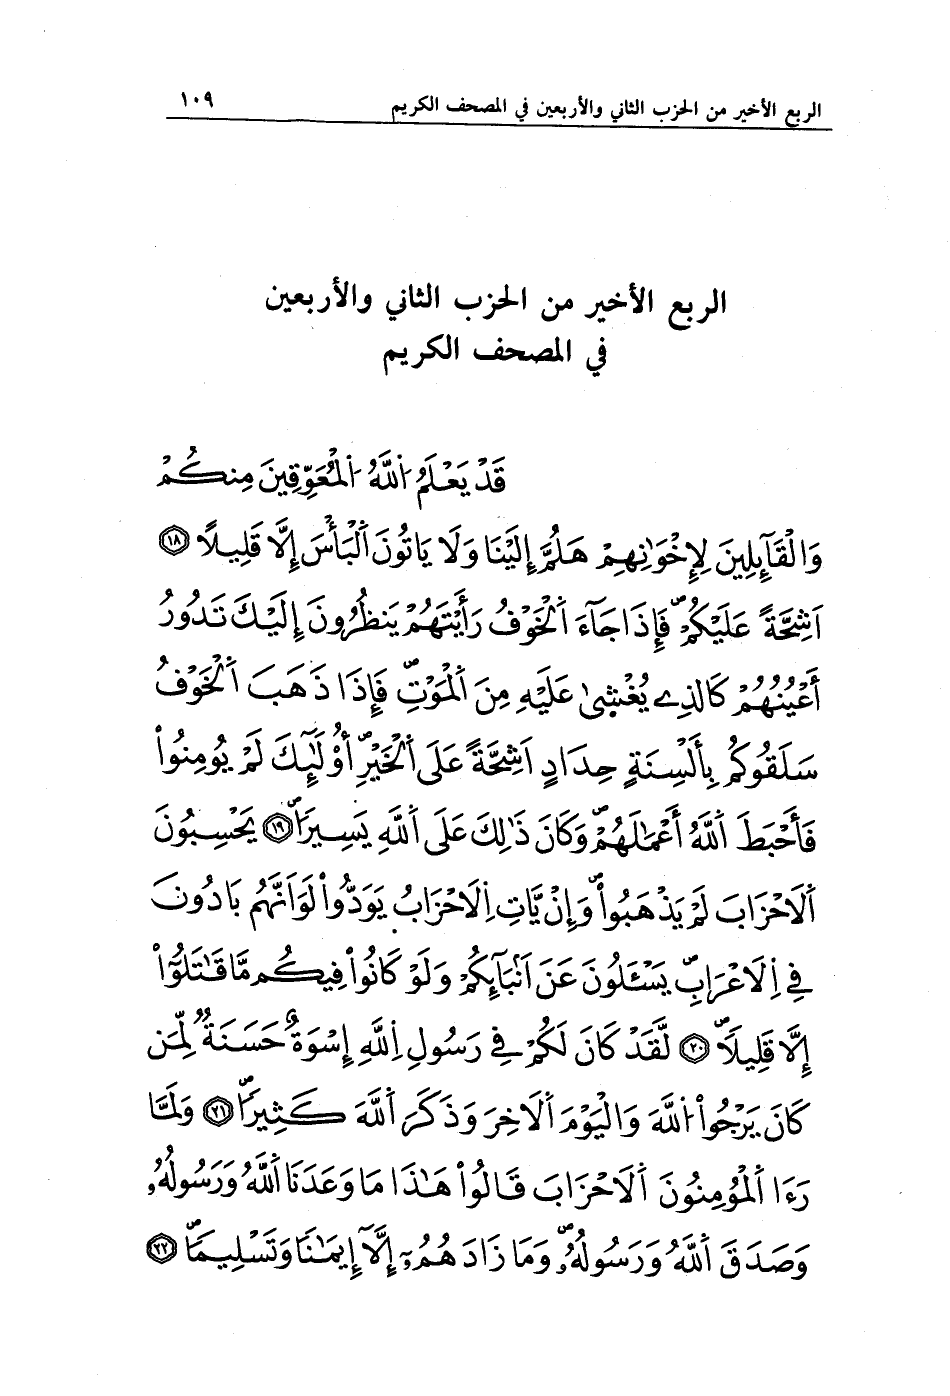 الربع الأخير من الحزب الثاني والأربعين في المصحف الكريم ١٠٩
الربع الأخير من الحزب الثاني والأربعين
في المصحف الكريم
قَدْ يَعْلَمُ اُللَّهُ اُلْمُعَوِّقِينَ مِنكُمْ
وَالْقَآئِلِينَ لِإِخْوَٰنِهِمْ هَلُمَّ إِلَيْنَا وَلَا يَاتُونَ اَلْبَأْسَ إِلَّا قَلِيلًا ١٨
اَشِحَّةً عَلَيْكُمْ فَإِذَا جَآءَ اَلْخَوْفُ رَأَيْتَهُمْ يَنظُرُونَ إِلَيْكَ تَدُورُ
أَعْيُنُهُمْ كَالذِے يُغْشِىٰ عَلَيْهِ مِنَ اَلْمَوْتِ فَإِذَا ذَهَبَ اَلْخَوْفُ
سَلَقُوكُم بِأَلْسِنَةٍ حِدَادٍ اَشِحَّةً عَلَى اَلْخَيْرِ أُوْلَٰٓئِكَ لَمْ يُومِنُواْ
فَأَحْبَطَ اَللَّهُ أَعْمَٰلَهُمْ وَكَانَ ذَٰلِكَ عَلَى اَللَّهِ يَسِيرًا ١٩ يَحْسِبُونَ
اَلَاحْزَابَ لَمْ يَذْهَبُواْ وَإِنْ يَّاتِ اِلَاحْزَابُ يَوَدُّواْ لَوَ اَنَّهُم بَادُونَ
فِے اِلَاعْرَابِ يَسْـَٔلُونَ عَنَ اَنۢبَآئِكُمْ وَلَوْ كَانُواْ فِيكُم مَّا قَٰتَلُوٓاْ
إِلَّا قَلِيلًا ٢٠ لَّقَدْ كَانَ لَكُمْ فِے رَسُولِ اِللَّهِ إِسْوَةٌ حَسَنَةٌ لِّمَن
كَانَ يَرْجُواْ اُللَّهَ وَالْيَوْمَ اَلَاخِرَ وَذَكَرَ اَللَّهَ كَثِيرًا ٢١ وَلَمَّا
رَءَا اَلْمُومِنُونَ اَلَاحْزَابَ قَالُواْ هَٰذَا مَا وَعَدَنَا اَللَّهُ وَرَسُولُهُۥ
وَصَدَقَ اَللَّهُ وَرَسُولُهُۥ وَمَا زَادَهُمُۥٓ إِلَّآ إِيمَٰنًا وَتَسْلِيمًا ٢٢